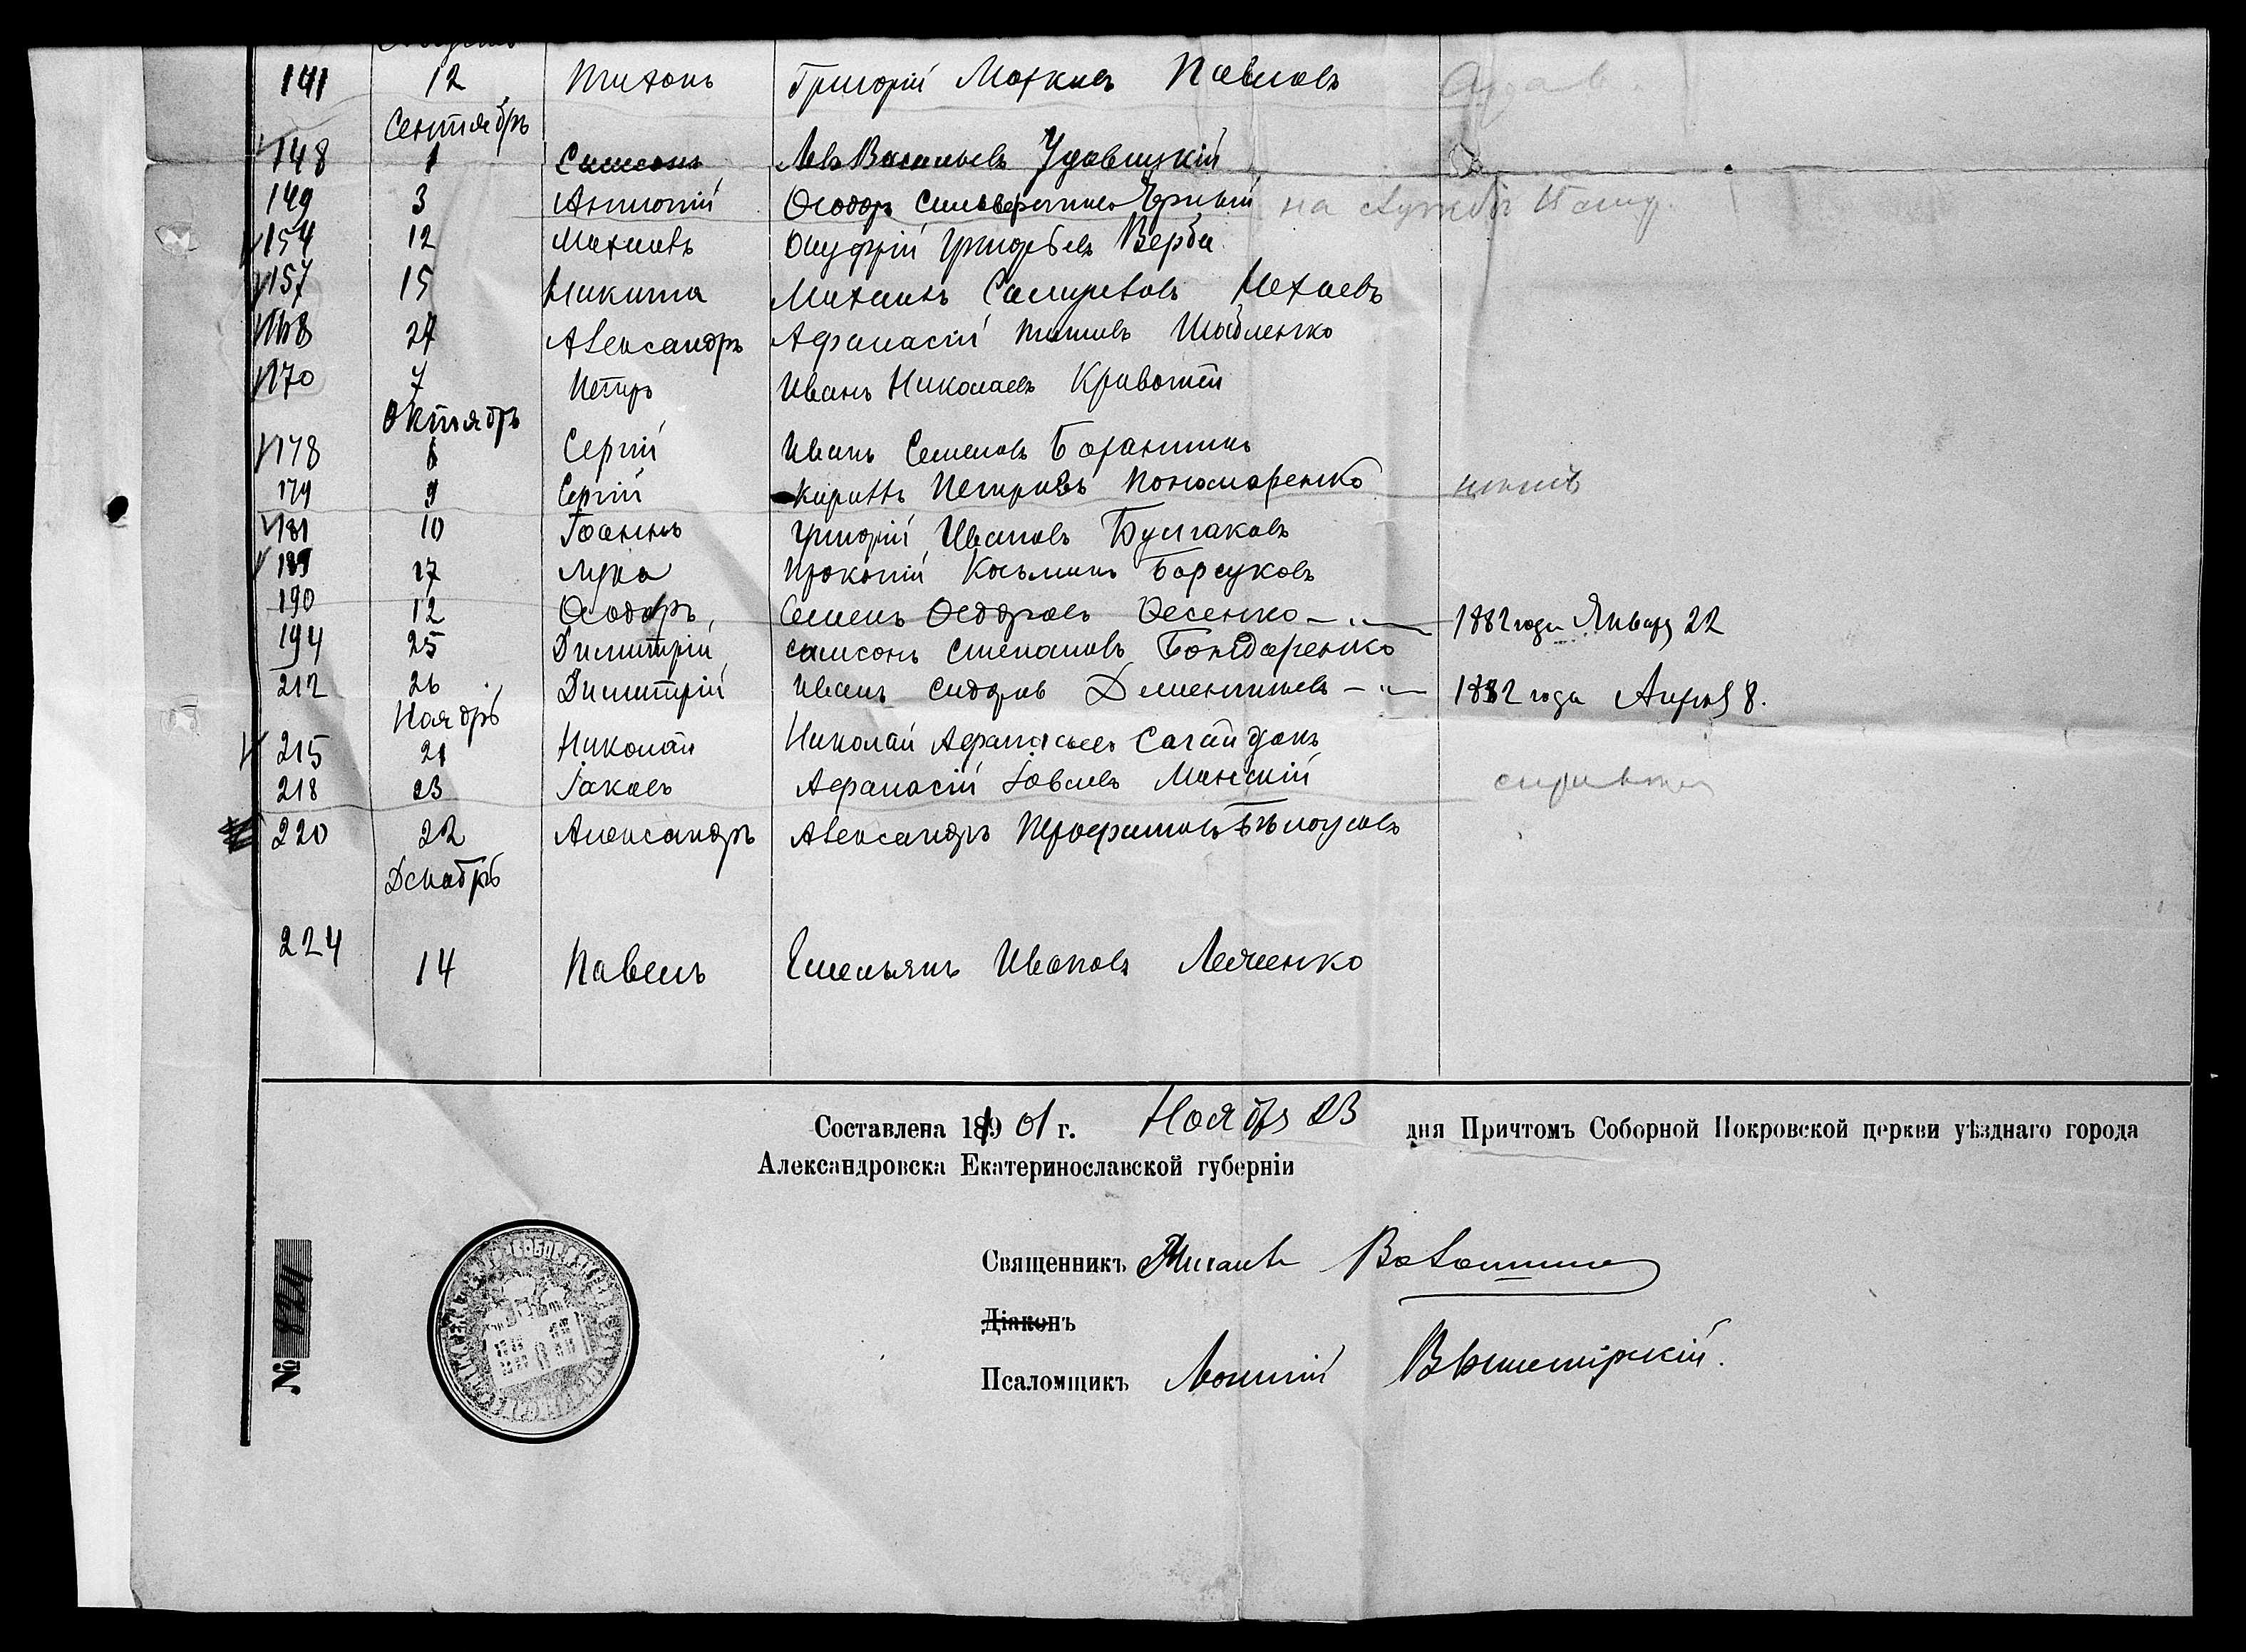 141 12 Тихонъ Григорій Павловъ
Сентябрь
148 1 Симеонъ Левъ Васильевъ Удовицкій
149 3 Антоній Ѳеодоръ Сильверстовъ Чорный на службѣ
154 12 Михаилъ Онуфрій Григорьевъ Верба
157 15 Никита Михаилъ Самуиловъ Нехаевъ
168 27 Александръ Афанасій Титовъ
170 7 Петръ Иванъ Николаевъ
Октябрь
178 6 Сергій Иванъ Семеновъ
179 9 Сергій Кириллъ Петровъ Пономаренко
181 10 Іоаннъ Григорій Ивановъ Булгаковъ
189 17 Лука Прокопій Косьминъ Борсуковъ
190 12 Ѳеодоръ, Семенъ Ѳедоровъ Фесенко 1882 года Января 22
194 25 Димитрій Самсонъ Степановъ Бондаренко
212 26 Димитрій Иванъ Сидоровъ Дементьевъ 1882 года Апрѣля 8.
Ноябрь
215 21 Николай Николай Афанасьевъ Сагайдакъ
218 23 Іаковъ Афанасій Іовлевъ Минскій справка
220 22 Александръ Александръ Трофимовъ Бѣлоусовъ
Декабрь
224 14 Павелъ Емельянъ Ивановъ Лященко
Составлена 1901 г. Ноября 23 дня Причтомъ Соборной Покровской церкви уѣзднаго города
Александровска Екатеринославской губерніи
Священникъ Михаилъ Волошинъ
Діаконъ
№ 824
Псаломщикъ Логгинъ Вышемірскій.